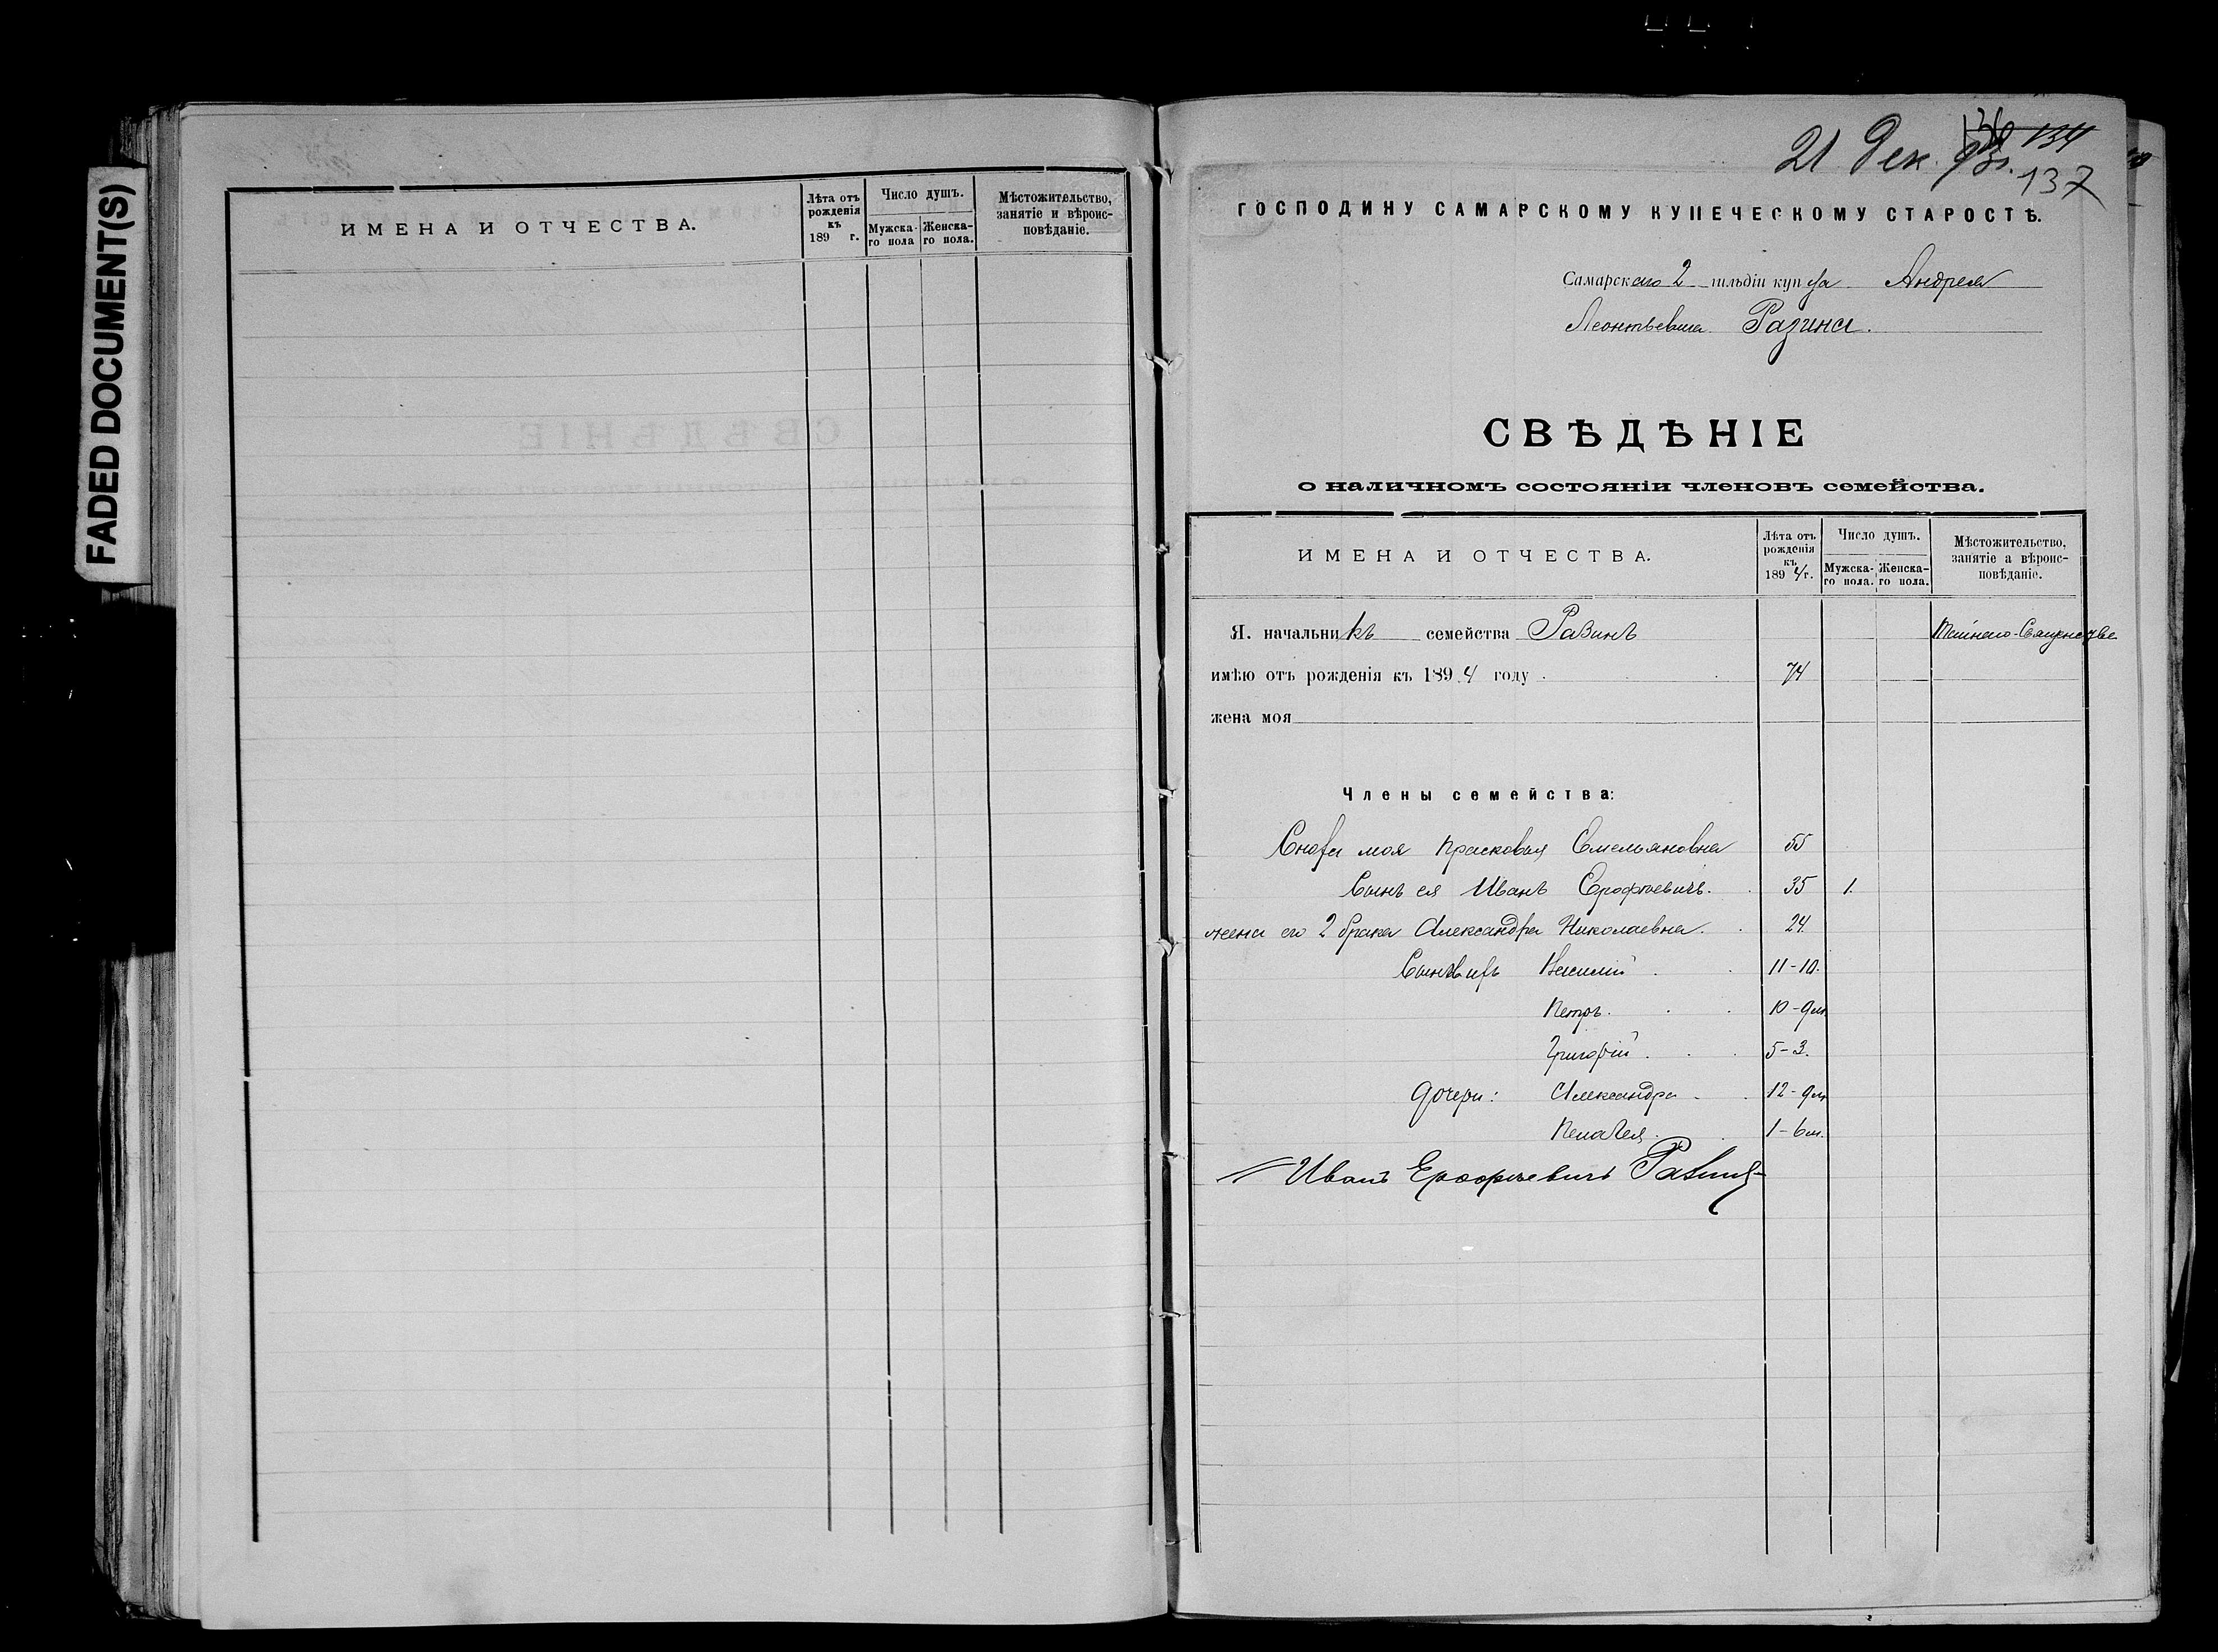 FADED DOCUMENT(S)
ИМЕНА И ОТЧЕСТВА.
Лѣта отъ рожденія къ 189 г.
Число душъ.
Мужска-го пола
Женска-го пола.
Мѣстожительство, занятіе и вѣроис-повѣданіе.
134
21 Дек. 93г.
137
ГОСПОДИНУ САМАРСКОМУ КУПЕЧЕСКОМУ СТАРОСТѢ.
Самарскаго 2 гильдіи купца Андрея
Леонтьевича Разина.
СВѢДѢНІЕ
о наличномъ состояніи членовъ семейства.
ИМЕНА И ОТЧЕСТВА.
Лѣта отъ рожденія къ 1894 г.
Число душъ.
Мужска-го пола.
Женска-го пола.
Мѣстожительство, занятіе а вѣроис-повѣданіе.
Я. начальникъ семейства Разинъ
имѣю отъ рожденія къ 1894 году 74
жена моя
Члены семейства:
Сноха моя Прасковья Емельяновна 55
Сынъ ея Иванъ Ерофѣевичъ. 35 1.
жена его 2 брака Александра Николаевна. 24.
Василій 11-10.
Петръ. 10-9м.
Григорій 5-3.
Дочери: Александра 12-9м
Пелагея. 1-6м.
Иванъ Ерофѣевичъ Разинъ